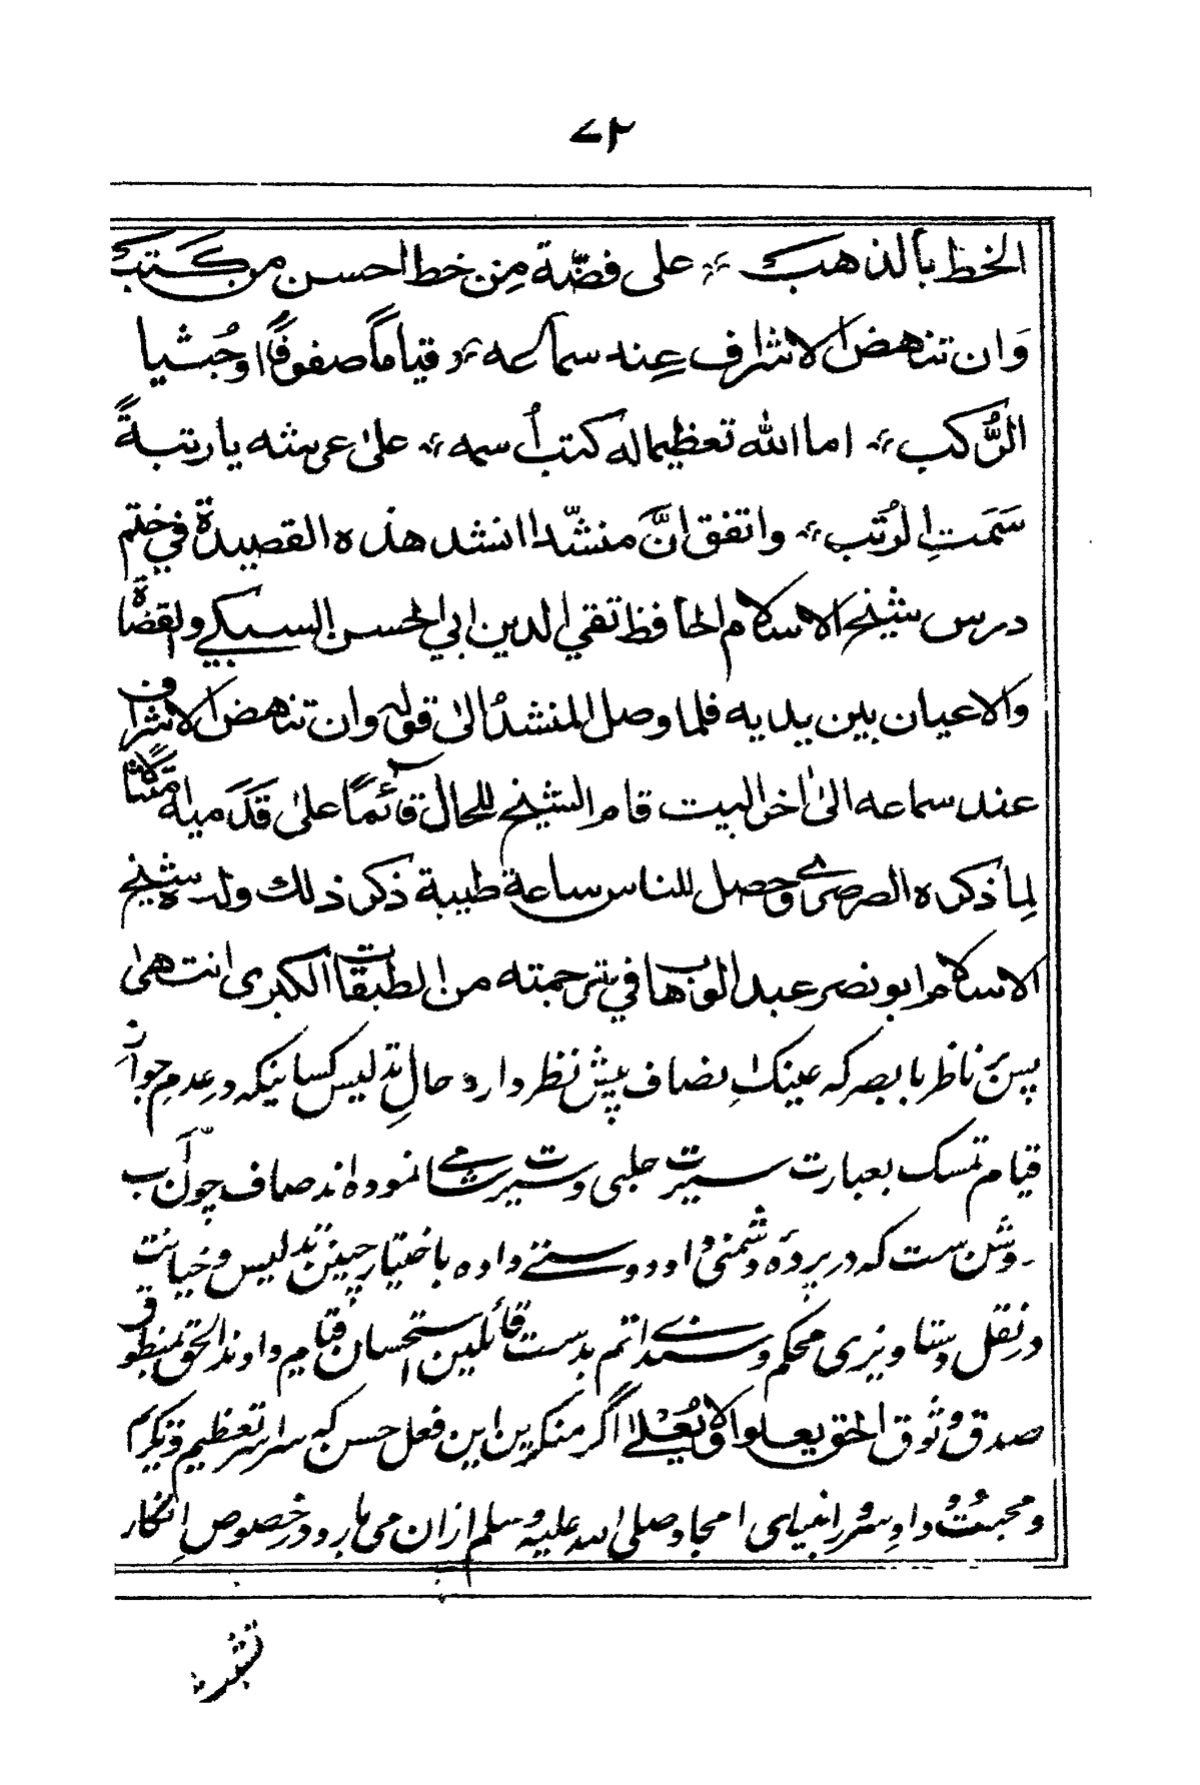 ۷۲
الخط بالذهب ؞ على فضّة مِن خط احسن من كتب
وَان تنهض الاشراف عِند سماعه ؞ قياماً صفوفاً اوجُثيا
الرُّكب ؞ اما الله تعظيما له كتب اُسمه ؞ علىٰ عرشه يا رتبةً
سَمَتِ الرُتبِ ؞ واتفق انَّ منشّدا انشد هذه القصيدة في ختم
درس شيخ الاسلام الحافظ تقي الدين ابي الحسن السبكي والقضاة
والاعيان بين يديه فلما وصل المنشدُ الىٰ قوله وان تنهض الاشراف
عند سماعه الىٰ اخر البيت قام الشيخ للحال قآئمًا علىٰ قَدَميه
لِما ذكره الصرصري وحصل للناس ساعة طيبة ذكر ذلك ولده شيخ
الاسلام ابو نصر عبد الوهاب في ترجمته من الطبقات الكبرى انتهىٰ
پس بَر ناظر با بصر که عینکِ انصاف پیش نظر دارد حالِ تدلیس کسانیکه در عدمِ جوازِ
قیام تمسک بعبارت سیرت حلبی و سیرت شامی نموده اند صاف چون آب
روشن ست که در پردهٔ دشمنی داد دوستی داده باختیار چنین تدلیس و خیانت
در نقل دستاویزی محکم و سندی اتم بدست قائلین استحسان قیام داوند الحق بمنطوق
صدق وثوق الحق یعلو ولا یُعْلیٰ اگر منکرین این فعل حسن که سراسر تعظیم و تکریم
و محبت داور سرور انبیای امجاد صلی الله علیه وسلم ازان می بارد در خصوصِ انکار